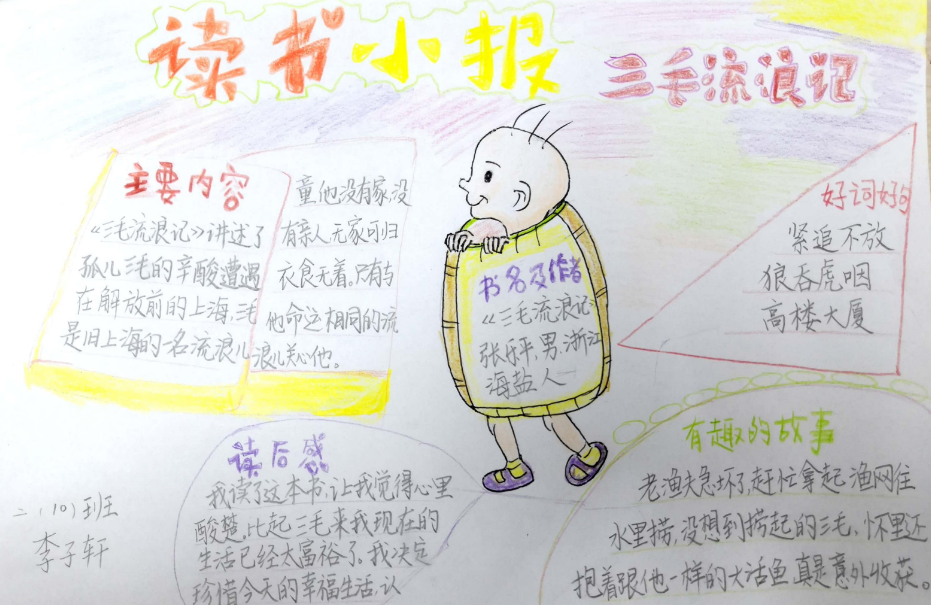 读书小报
三毛流浪记
主要内容
《三毛流浪记》讲述了
孤儿三毛的辛酸遭遇
在解放前的上海,三毛
是旧上海的一名流浪儿
童他没有家,没
有亲人无家可归
衣食无着。只有与
他命运相同的流
浪儿关心他。
书名及作者
《三毛流浪记
张乐平,男,浙江
海盐人
好词好句
紧追不放
狼吞虎咽
高楼大厦
读后感
我读了这本书,让我觉得心里
酸楚,比起三毛来我现在的
生活已经太富裕了,我决定
珍惜今天的幸福生活,认
有趣的故事
老渔夫急坏了,赶忙拿起渔网往
水里捞,没想到捞起的三毛,怀里还
抱着跟他一样的大活鱼,真是意外收获。
二(10)班
李子轩